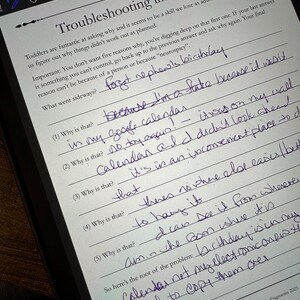 Troubleshooting
Toddlers are fantastic at asking why and it seems to be a skill we lose as
us figure out why things didn't work out as planned.
Important: You don't want five reasons why, you're digging deep on that first one. If your last answer
is something you can't control, go back to the previous answer and ask why again. Your final
reason can't be because of a person or because "neurospicy".
What went sideways? forgot nephew's birthday
(1) Why is that? because I'm a fake because it wasn't
in my google calendar
(2) Why is that? no tmy google! - it was on my wall
calendar and I didn't look ahead
(3) Why is that? it's in an inconvenient place to
that
(4) Why is that? there's no where else easier/
to hang it
(5) Why is that? I can see it from wherever
am in the room where it is
So here's the root of the problem: birthday is in my
calendar not my electronic ones
to copy them over